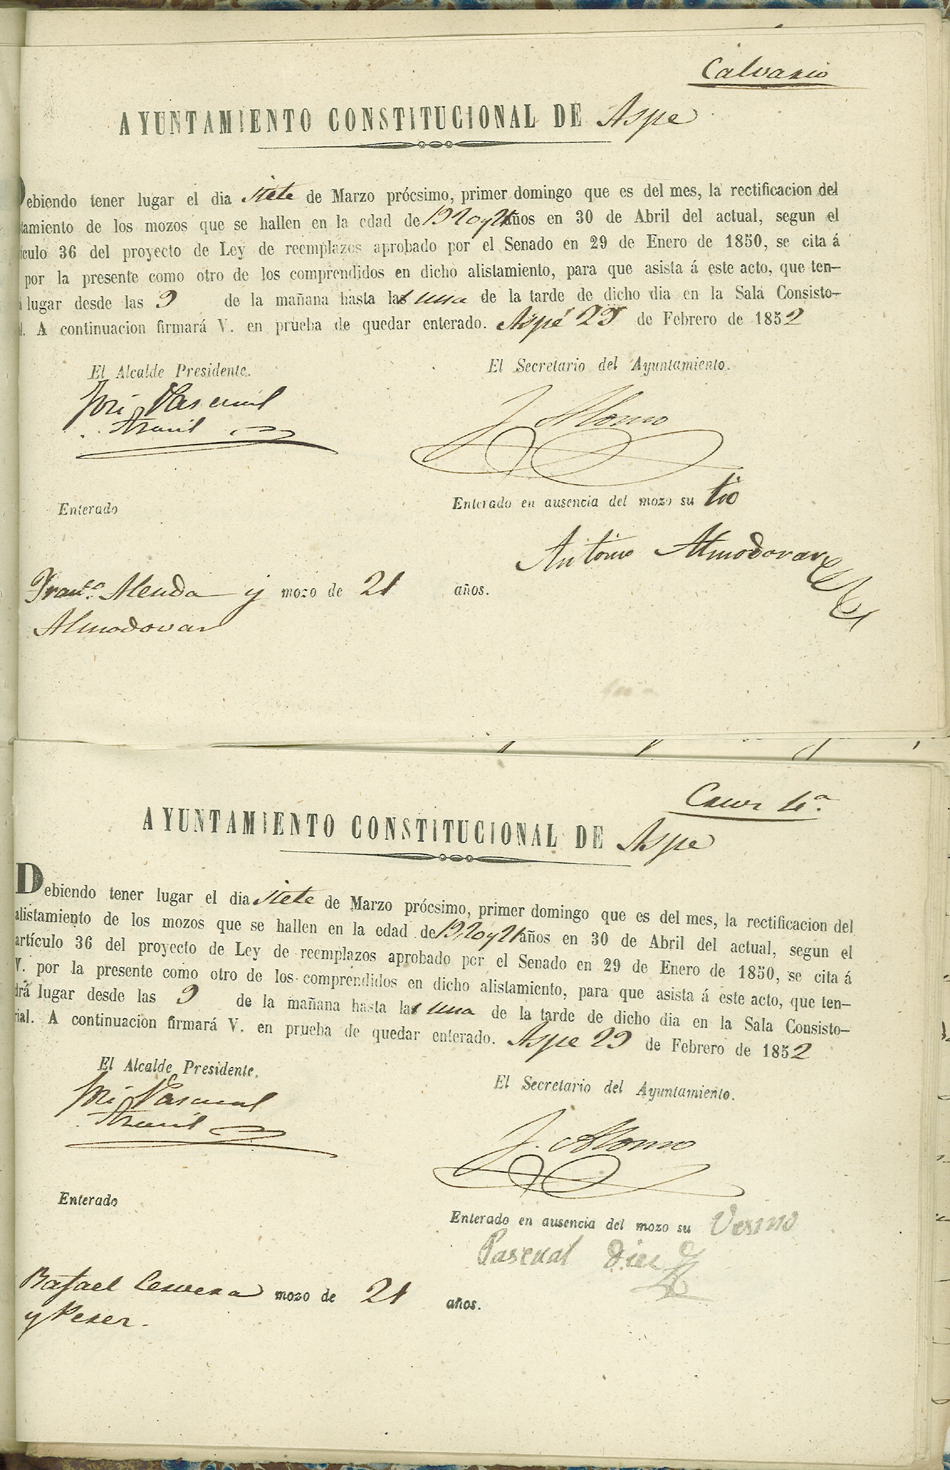 Calvario
AYUNTAMIENTO CONSTITUCIONAL DE Aspe
Debiendo tener lugar el dia siete de Marzo prócsimo, primer domingo que es del mes, la rectificacion del
tamiento de los mozos que se hallen en la edad de 19 20 y 21 años en 30 de Abril del actual, segun el
ículo 36 del proyecto de Ley de reemplazos aprobado por el Senado en 29 de Enero de 1850, se cita á
por la presente como otro de los comprendidos en dicho alistamiento, para que asista á este acto, que ten–
lugar desde las 9 de la mañana hasta la una de la tarde de dicho dia en la Sala Consisto–
l. A continuacion firmará V. en prueba de quedar enterado. Aspe 29 de Febrero de 1852
El Alcalde Presidente. El Secretario del Ayuntamiento.
José Pascual J. Alonso
Enterado Enterado en ausencia del mozo su tio
Antonio Almodovar
Franco. Alenda y mozo de 21 años.
Almodovar
Cauz 4a.
AYUNTAMIENTO CONSTITUCIONAL DE Aspe
Debiendo tener lugar el dia siete de Marzo prócsimo, primer domingo que es del mes, la rectificacion del
alistamiento de los mozos que se hallen en la edad de 19, 20 y 21 años en 30 de Abril del actual, segun el
artículo 36 del proyecto de Ley de reemplazos aprobado por el Senado en 29 de Enero de 1850, se cita á
V. por la presente como otro de los comprendidos en dicho alistamiento, para que asista á este acto, que ten–
drá lugar desde las 9 de la mañana hasta la una de la tarde de dicho dia en la Sala Consisto–
rial. A continuacion firmará V. en prueba de quedar enterado. Aspe 29 de Febrero de 1852
El Alcalde Presidente. El Secretario del Ayuntamiento.
José Pascual J. Alonso
Enterado Enterado en ausencia del mozo su
Pascual Diez
Rafael Cervera mozo de 21 años.
y Perez.